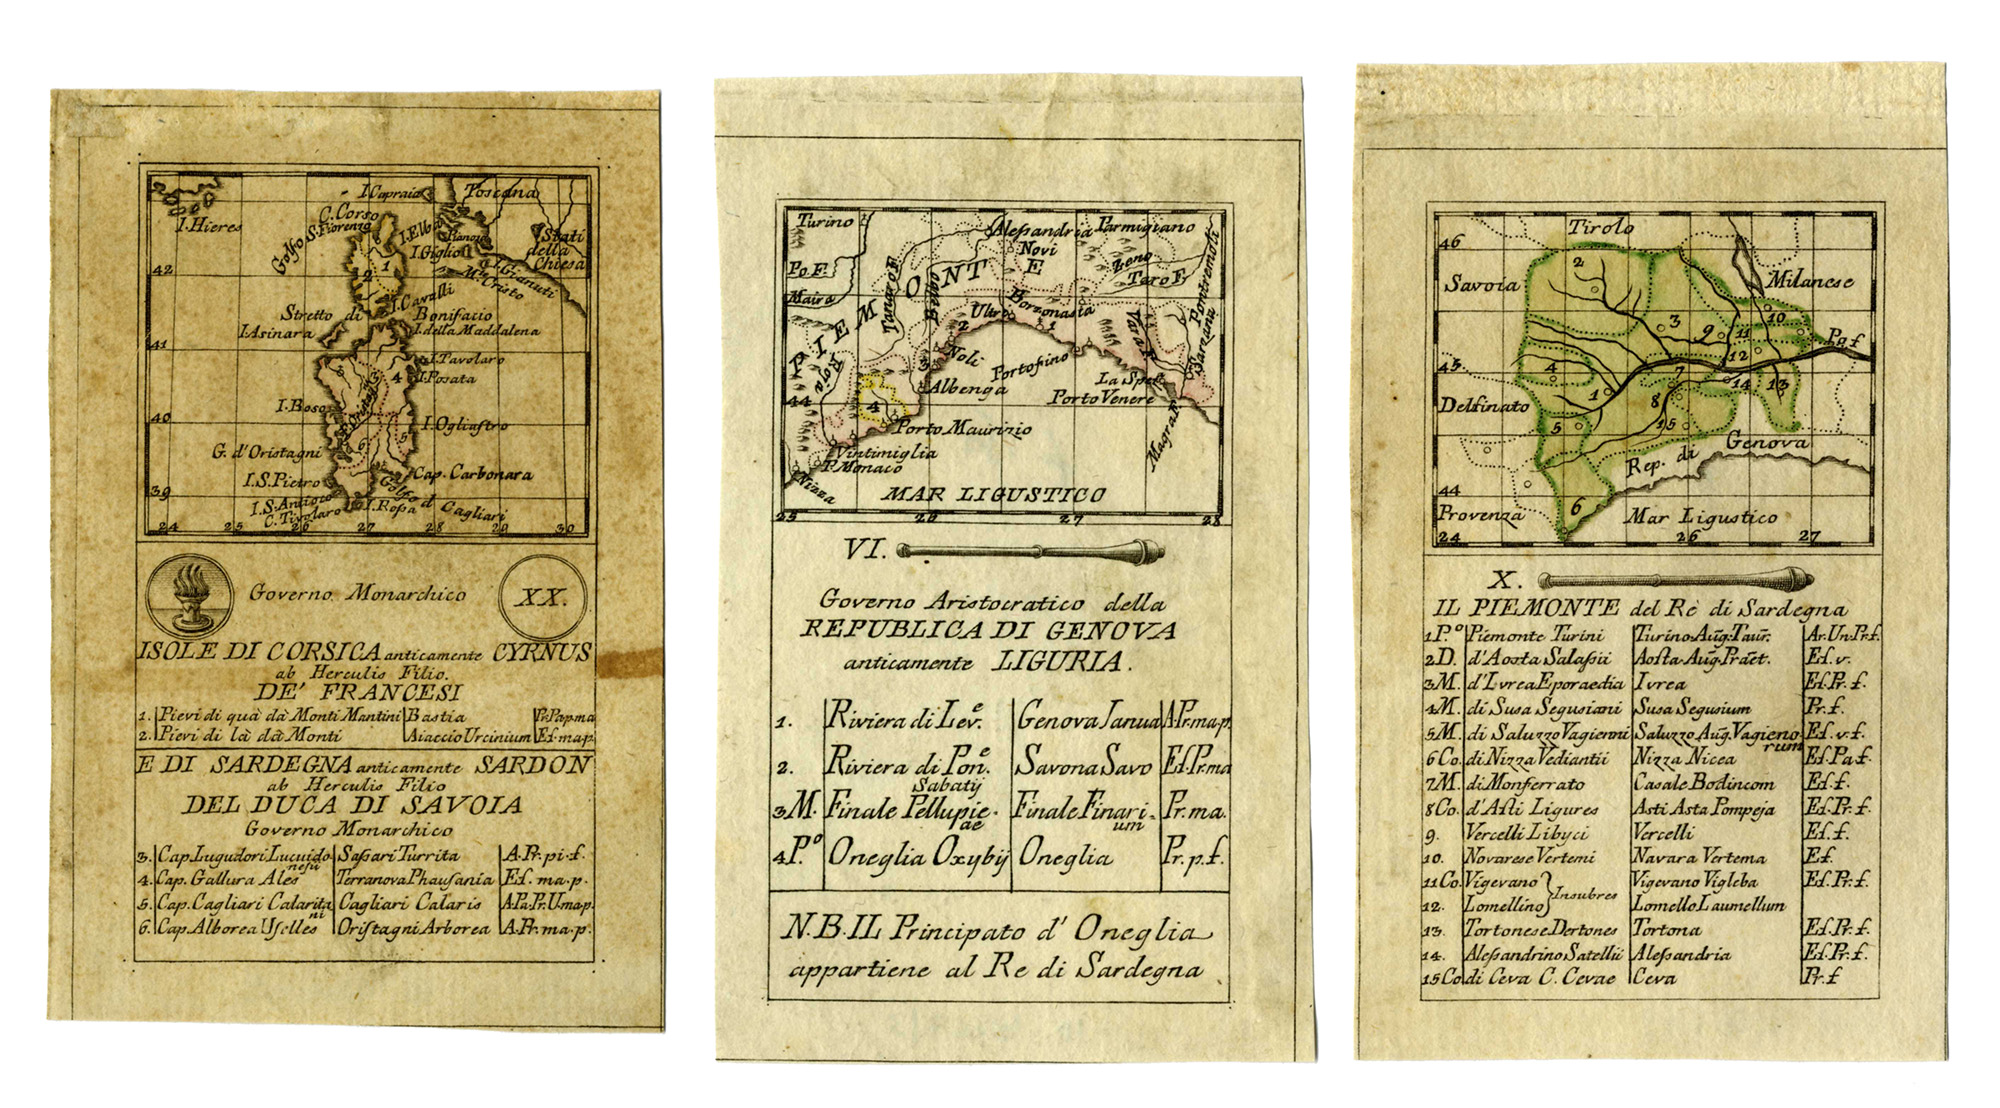 I. Capraia
Toscana
I. Hieres
C. Corso
S. Fiorenzo
Golfo
I. Elba
Pianosa
I. Giglio
Stati
della
Chiesa
I. Gianuti
M.te Cristo
42
1
2
I. Cavalli
Stretto di Bonifacio
I. Asinara
I. della Maddalena
41
I. Tavolaro
I. Posata
3
4
I. Boso
40
I. Ogliastro
5
6
G. d'Oristagni
Cap. Carbonara
I. S. Pietro
39
I. S. Antioco
C. Tivolaro
I. Rossa
Golfo di Cagliari
24 25 26 27 28 29 30
Governo Monarchico
XX.
ISOLE DI CORSICA anticamente CYRNUS
ab Herculis Filio.
DE' FRANCESI
1. Pievi di quà dà Monti Mantini Bastia Pr. Pap. ma
2. Pievi di là dà Monti Aiaccio Urcinium Ef. ma. p.
E DI SARDEGNA anticamente SARDON
ab Herculis Filio
DEL DUCA DI SAVOIA
Governo Monarchico
3. Cap. Lugudori Lucuidonesii Sassari Turrita A. Pr. pi. f.
4. Cap. Gallura Ales Terranova Phausania Ef. ma. p.
5. Cap. Cagliari Calaritani Cagliari Calaris A. Pa. Pr. U. ma. p.
6. Cap. Alborea Uselles Oristagni Arborea A. Pr. ma. p.
Turino
Alessandria
Parmigiano
Novi
Po. F.
Maira
Tanaro F.
PIEMONTE
Belbo
Zeno
Taro F.
Pontremoli
Ultro
Borzonasta
1
2
Vara F.
Sarzana
Roja
Noli
3
Portofino
44
4
Albenga
La Spez
Porto Venere
Porto Maurizio
Vintimiglia
P. Monaco
Nizza
Magra F.
MAR LIGUSTICO
25 26 27 28
VI.
Governo Aristocratico della
REPUBLICA DI GENOVA
anticamente LIGURIA.
1. Riviera di Lev.e Genova Janua A. Pr. ma. p.
2. Riviera di Pon.e Savona Savo Ef. Pr. ma
Sabatij
3 M. Finale Pellupieae Finale Finarium Pr. ma.
4 P.o Oneglia Oxybij Oneglia Pr. p. f.
N.B. IL Principato d' Oneglia
appartiene al Re di Sardegna
46
Tirolo
2
Savoia
Milanese
3
9
10
11
12
Po. f.
45
4
7
14
13
1
8
Delfinato
5
15
Genova
Rep. di
44
6
Provenza
Mar Ligustico
24 26 27
X.
IL PIEMONTE del Rè di Sardegna
1 P.o Piemonte Turini Turino Aug. Taur. Ar. Un. Pr. f.
2 D. d'Aosta Salassii Aosta Aug. Praet. Ef. v.
3 M. d'Ivrea Eporaedia Ivrea Ef. Pr. f.
4 M. di Susa Segusiani Susa Segusium Pr. f.
5 M. di Saluzzo Vagienni Saluzzo Aug. Vagienorum Ef. v. f.
6 Co. di Nizza Vediantii Nizza Nicea Ef. Pa. f.
7 M. di Monferrato Casale Bodincom Ef. f.
8 Co. d'Asti Ligures Asti Asta Pompeja Ef. Pr. f.
9. Vercelli Libyci Vercelli Ef. f.
10. Novarese Vertemi Navara Vertema Ef.
11 Co. Vigevano Insubres Vigevano Vigleba Ef. Pr. f.
12. Lomellino Lomello Laumellum
13. Tortonese Dertones Tortona Ef. Pr. f.
14. Alessandrino Satellii Alessandria Ef. Pr. f.
15 Co. di Ceva C. Cevae Ceva Pr. f